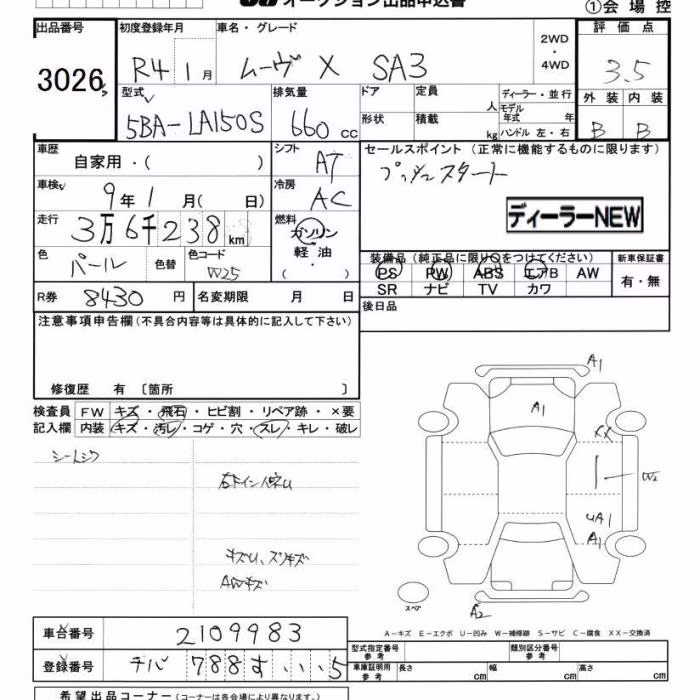 オークション出品申込書
①会場控
出品番号
3026
初度登録年月
R4 1月
車名・グレード
ムーヴ X SA3
2WD
・
4WD
評価点
3.5
外装 内装
B B
型式
5BA-LA150S
排気量
660 cc
ドア
形状
定員 人
積載 kg
ディーラー・並行
モデル年式 年
ハンドル 左・右
車歴
自家用・( )
シフト
AT
車検
9年1月( 日)
冷房
AC
走行
3万6千238km
燃料
ガソリン
軽油
( )
色
パール
色替
色コード
W25
R券 8430 円
名変期限 月 日
セールスポイント (正常に機能するものに限ります)
プッシュスタート
ディーラーNEW
装備品(純正品に限り○をつけてください)
PS PW ABS エアB AW
SR ナビ TV カワ
新車保証書
有・無
後日品
注意事項申告欄(不具合内容等は具体的に記入して下さい)
修復歴 有 〔箇所 〕
検査員 FW キズ・飛石・ヒビ割・リペア跡・×要
記入欄 内装 キズ・汚レ・コゲ・穴・スレ・キレ・破レ
AWキズ
A1
A1
XX
W2
UA1
A1
A2
スペア
A-キズ E-エクボ U-凹み W-補修跡 S-サビ C-腐食 XX-交換済
車台番号 2109983
登録番号 チバ 788 す ・・・5
型式指定番号
参考
類別区分番号
参考
車庫証明用
参考
長さ cm 幅 cm 高さ cm
希望出品コーナー(コーナーは各会場により異なります。)